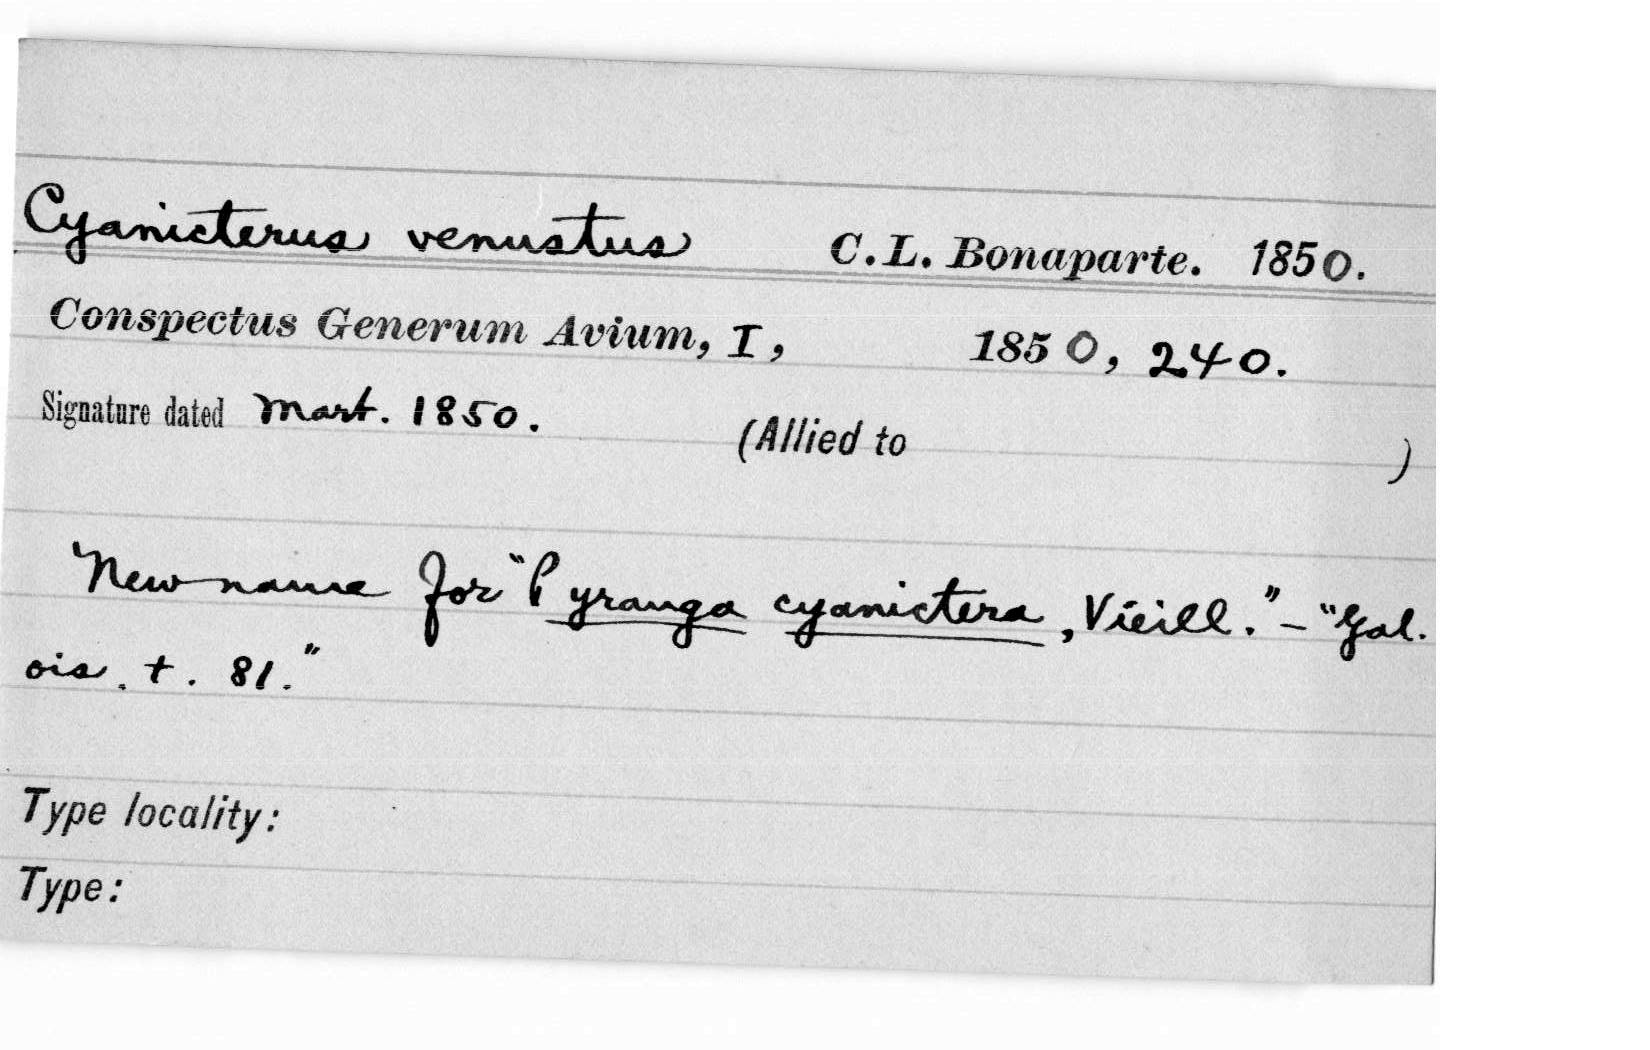 Cyanicterus venustus C.L. Bonaparte. 1850.
Conspectus Generum Avium, I, 1850, 240.
Signature dated Mart. 1850. (Allied to )
New name for "Pyranga cyanictera, Vieill." - "Gal.
ois. t. 81."
Type locality:
Type: